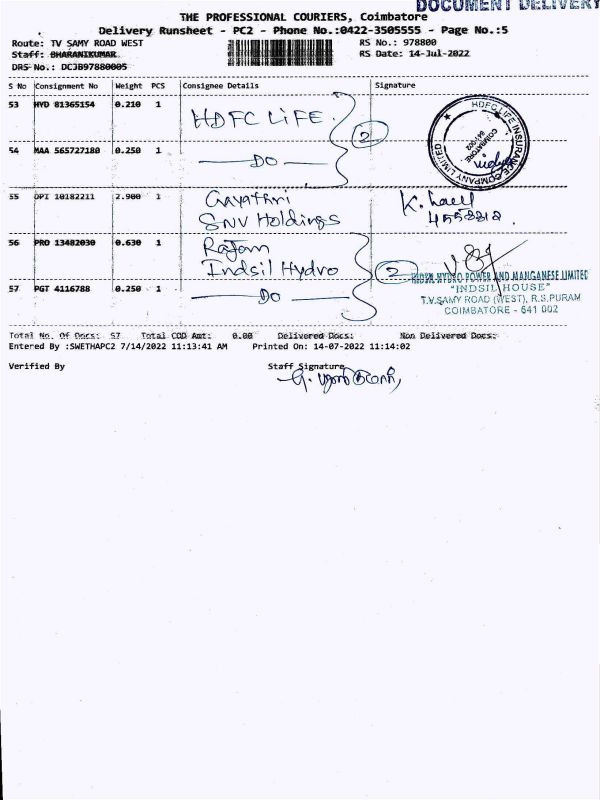 DOCUMENT DELIVERY
THE PROFESSIONAL COURIERS, Coimbatore
Delivery Runsheet - PC2 - Phone No.:0422-3505555 - Page No.:5
Route: TV SAMY ROAD WEST
RS No.: 978800
Staff: BHARANIKUMAR
RS Date: 14-Jul-2022
DRS No.: DCJB97880005
S No Consignment No Weight PCS Consignee Details Signature
53 HYD 81365154 0.210 1 HDFC LIFE
2
HDFC LIFE INSURANCE COMPANY LIMITED
COIMBATORE
641002
54 MAA 565727180 0.250 1 DO
55 OPI 10182211 2.900 1 Gayathri
SNV Holdings
56 PRO 13482030 0.630 1 Rajam
Indsil Hydro
2
INDSIL HYDRO POWER AND MANGANESE LIMITED
"INDSIL HOUSE"
57 PGT 4116788 0.250 1 DO
T.V.SAMY ROAD (WEST), R.S.PURAM
COIMBATORE - 641 002
Total No. Of Docs: 57 Total COD Amt: 0.00 Delivered Docs: Non Delivered Docs:
Entered By :SWETHAPC2 7/14/2022 11:13:41 AM Printed On: 14-07-2022 11:14:02
Verified By Staff Signature